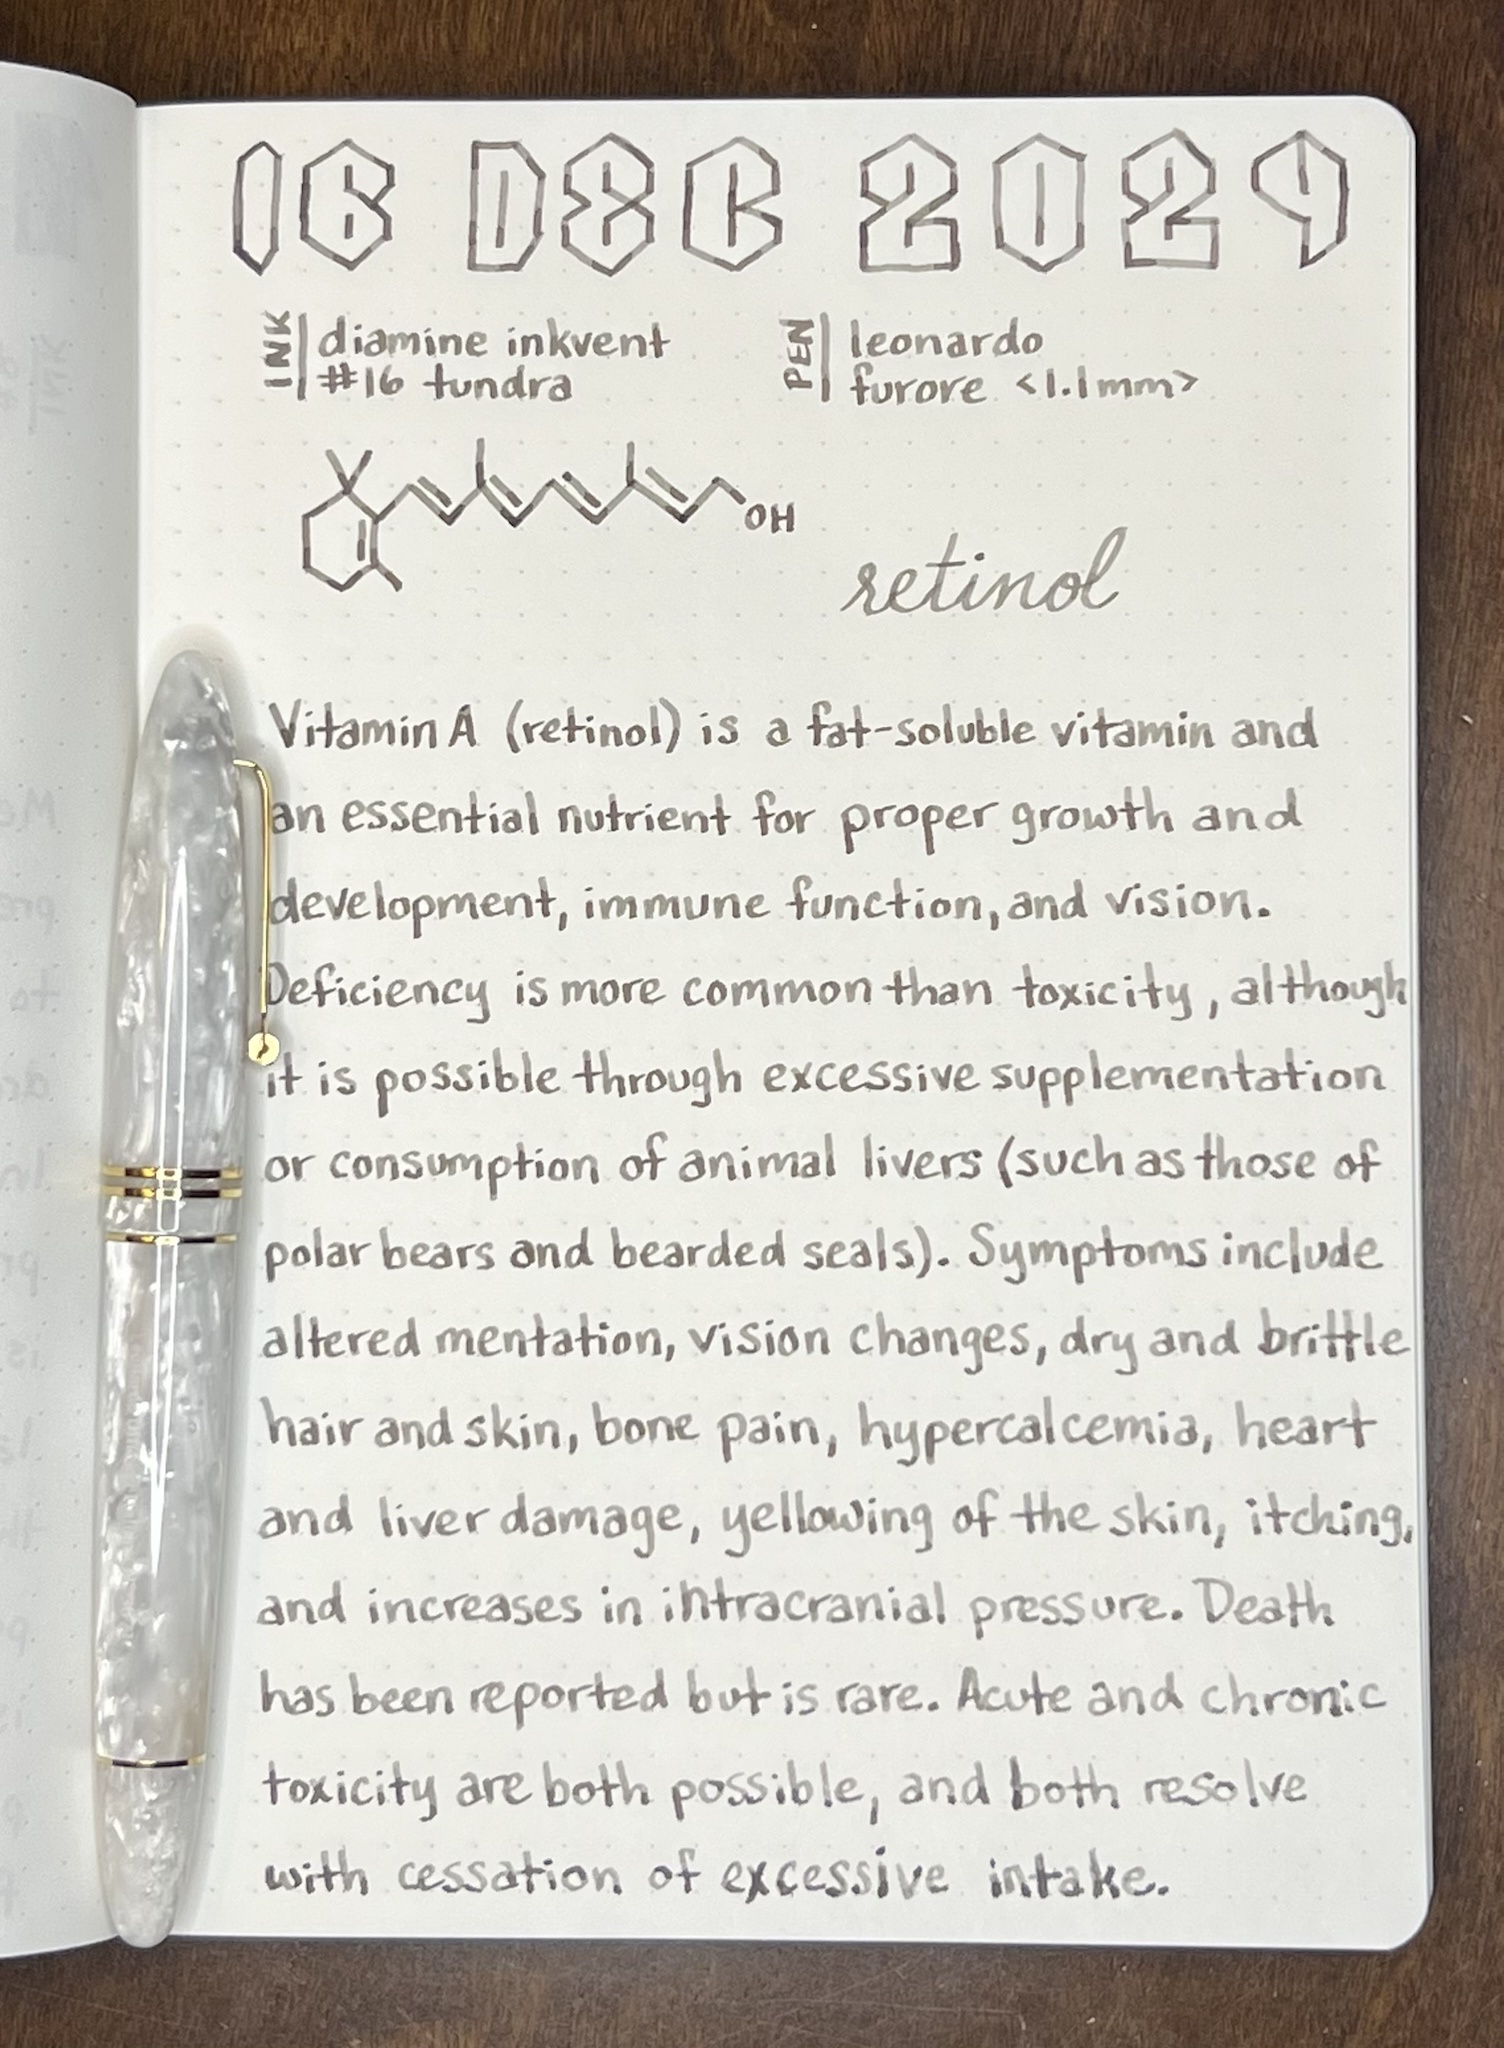 16 DEC 2024
INK diamine inkvent
#16 tundra
PEN leonardo
furore <1.1mm>
OH
retinol
Vitamin A (retinol) is a fat-soluble vitamin and
an essential nutrient for proper growth and
development, immune function, and vision.
Deficiency is more common than toxicity, although
it is possible through excessive supplementation
or consumption of animal livers (such as those of
polar bears and bearded seals). Symptoms include
altered mentation, vision changes, dry and brittle
hair and skin, bone pain, hypercalcemia, heart
and liver damage, yellowing of the skin, itching,
and increases in intracranial pressure. Death
has been reported but is rare. Acute and chronic
toxicity are both possible, and both resolve
with cessation of excessive intake.